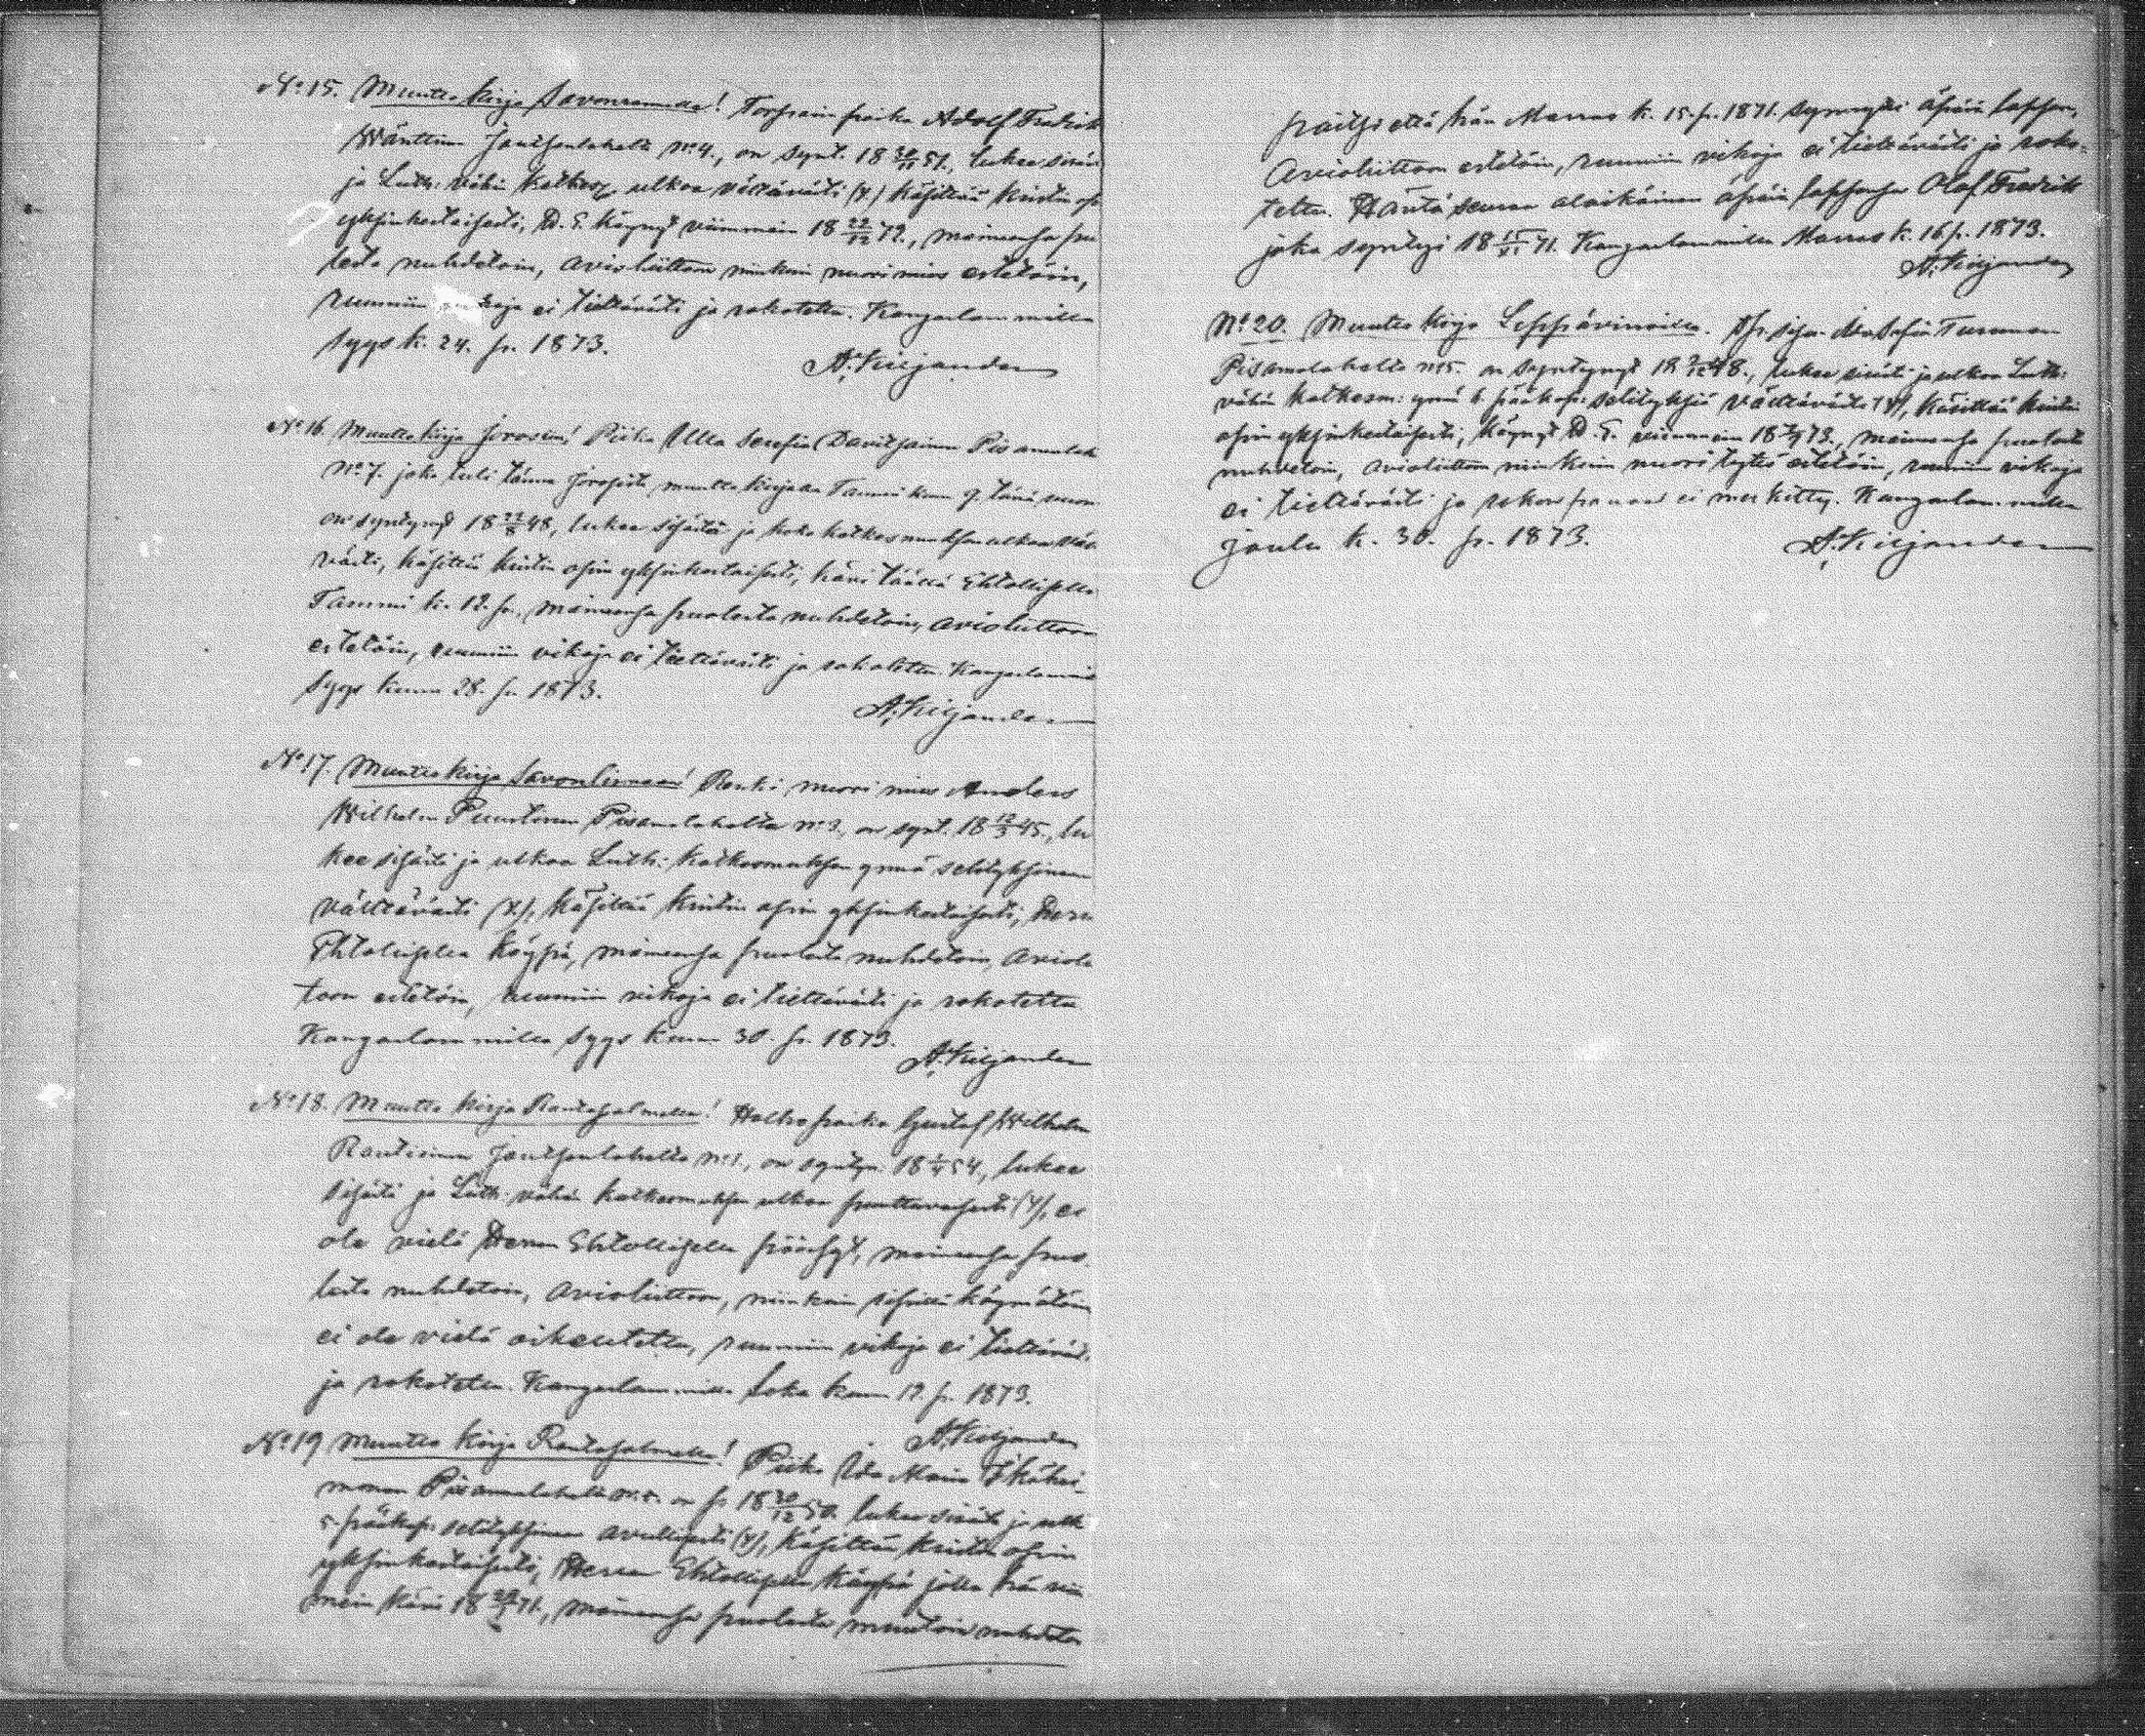 No 15. Muuttokirja Savonrannalle! Torpparin poika Adolf Fredrik
Wänttinen Joutsenlahelta No 4., on synt. 18 30/11 51., lukee sisäl.
ja Luth: vähä Katkesm. ulkoa välttävästi (x.) käsittää Kristin opin
yksinkertaisesti, H. E. käynyt viimmein 18 22/12 72., maineensa puo
lesta nuhdetoin, avioliittoon niinkuin nuori mies estetöin,
ruumiin vikoja ei tiettävästi ja rokotettu. Kangaslammilla
Syys k. 24. p. 1873.
A. Kiljander
No 16. Muuttokirja Joroisiin! Piika Ulla Serafia Davitsainen Pisamalah.
No 7. joka tuli tänne Joroisista muuttokirjalla Tammi kuun 9. tänä vuon.
on syntynyt 18 22/8 48, lukee sisältä ja koko katkesmuksen ulkoa vält
tävästi, käsittää kristin opin yksinkertaisesti, kävi täällä Ehtollisella
Tammi k. 12. p., maineensa puolesta nuhdetoin, avioliittoon
estetöin, ruumiin vikoja ei tiettävästi ja rokotettu. Kangaslammilla
Syys kuun 28. p. 1873.
A. Kiljander
No 17. Muuttokirja Savonlinnaan! Renki nuori mies Anders
Wilhelm Puustinen Pisamalahelta No 3., on synt. 18 12/3 45., lu
kee sisältä ja ulkoa Luth: Katkesmuksen ynnä selityksineen
välttävästi (x.), käsittää Kristin opin yksinkertaisesti, Herran
Ehtollisella käypä, maineensa puolesta nuhdetoin, avioliit
toon estetöin, ruumiin vikoja ei tiettävästi ja rokotettu
Kangaslammilla Syys kuun 30. p. 1873.
A. Kiljander
No 18. Muutto kirja Rantasalmelle! Halkopoika Gustaf Wilhelm
Rautiainen Joutsenlahelta No 1., on syntyn. 18 54, lukee
sisältä ja Luth. vähän katkesmuksen ulkoa puuttuvaisesti (y), ei
ole vielä Herran Ehtollisella päässyt, maineensa puo
lesta nuhdetoin, avioliittoon, niinkuin ripillä käymätöin
ei ole vielä oikeutettu, ruumiin vikoja ei tiettäväst.
ja rokotettu. Kangaslammilla Loka kuun 12. p. 1873.
A. Kiljander
No 19 Muutto kirja Rantasalmelle! Piika Ida Maria Ikähei
monen Pisamalahelta No 5. on s. 18 30/12 50. lukee sisältä ja ulk
5 pääkap: selityksineen avullisesti (y), käsittää kristin opin
yksinkertaisesti, Herran Ehtollisella käypä jolla hän vii
mein kävi 18 71., maineensa puolesta muutoin nuhdetoin
paitsi että hän Marras k. 15. p. 1871. synnytti äpärä lapsen,
Avioliittoon estetöin, ruumiin vikoja ei tiettävästi ja roko-
tettu. Häntä seuraa alaikäinen äpärä lapsensa Olof Fredrik
joka syntyi 18 15/XI 71. Kangaslammilla Marras k. 16 p. 1873.
A. Kiljander
No 20. Muutto kirja Leppävirroille. Itsp. Sofia Turunen
Pisamalahelta No 5. on syntynyt 18 48., lukee sisältä ja ulkoa Luth:
vähän katkesm: ynnä 6. pääkap: selityksiä välttävästi (y), käsittää kristin
opin yksinkertaisesti, käynyt H. E. viimmein 18 73., maineensa puolesta
nuhdetoin, avioliittoon niinkuin nuori tyttö estetöin, ruumiin vikoja
ei tiettävästi ja rokon panoa ei merkitty. Kangaslammilla
Joulu k. 30. p. 1873.
A. Kiljander